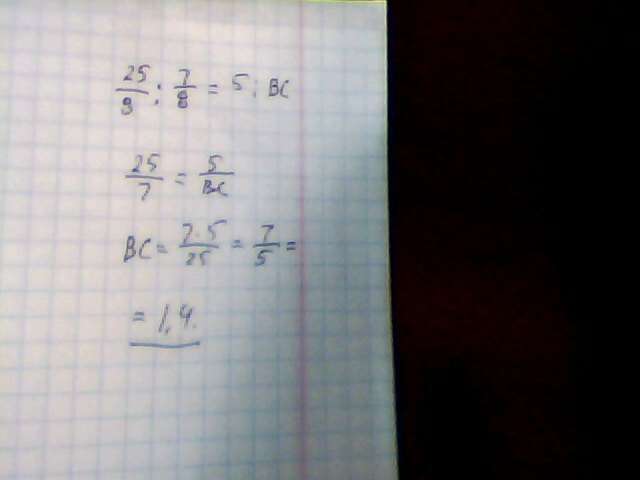 25/8 : 7/8 = 5 : BC
25/7 = 5/BC
BC = 7·5/25 = 7/5 =
= 1,4.